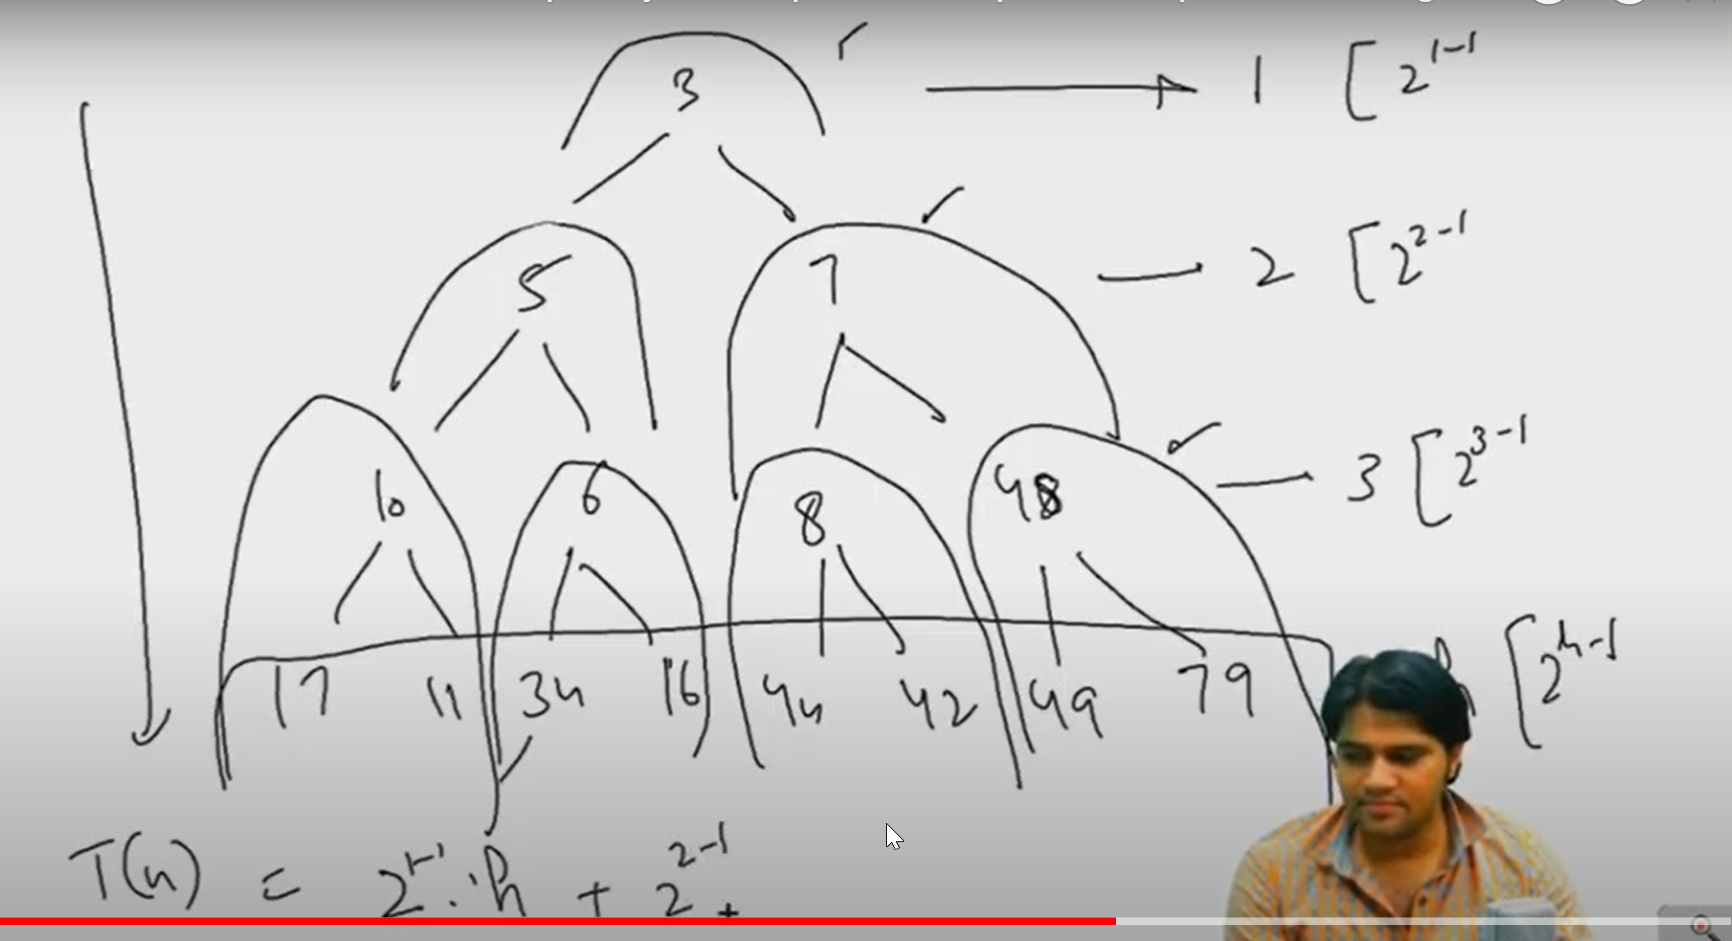 3 → 1 [2^{1-1}
5 7 — 2 [2^{2-1}
10 6 8 48 — 3 [2^{3-1}
17 11 34 16 44 42 49 79 [2^{h-1}
T(n) = 2^{1-1} · h + 2^{2-1}